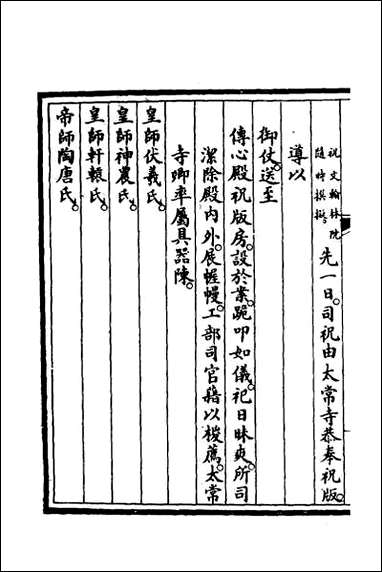 祝文翰林院
隨時撰擬
先一日。司祝由太常寺恭奉祝版。
導以
御仗。送至
傳心殿祝版房。設於業。跪叩如儀。祀日昧爽。所司
潔除殿內外。展幄幔。工部司官藉以椶薦。太常
寺卿率屬具器陳。
皇師伏羲氏。
皇師神農氏。
皇師軒轅氏。
帝師陶唐氏。